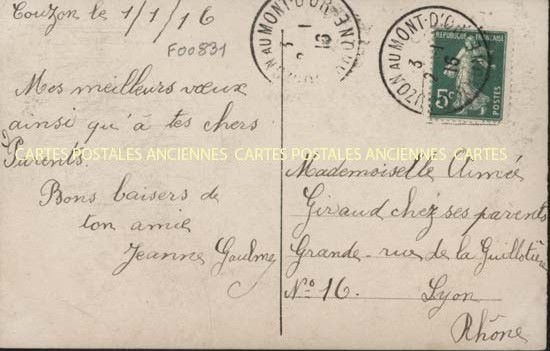 Couzon le 1/1/16
F00831
Mes meilleurs vœux
ainsi qu'à tes chers
Parents.
Bons baisers de
ton amie
Jeanne
COUZON AU MONT-D'OR
3 -1
16
RHONE
COUZON AU MONT-D'OR
3 -1
16
REPUBLIQUE FRANÇAISE
5c
POSTES
CARTES POSTALES ANCIENNES CARTES POSTALES ANCIENNES CARTES
Mademoiselle Aimée
Giraud chez ses parents
Grande-rue de la Guillotière
No 16. Lyon
Rhône